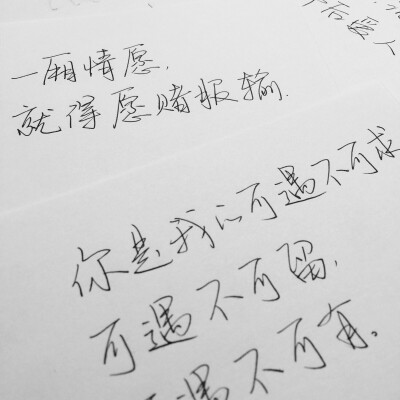 后爱人
一厢情愿,
就得愿赌服输.
你是我的可遇不可求
可遇不可留,
遇不可有。